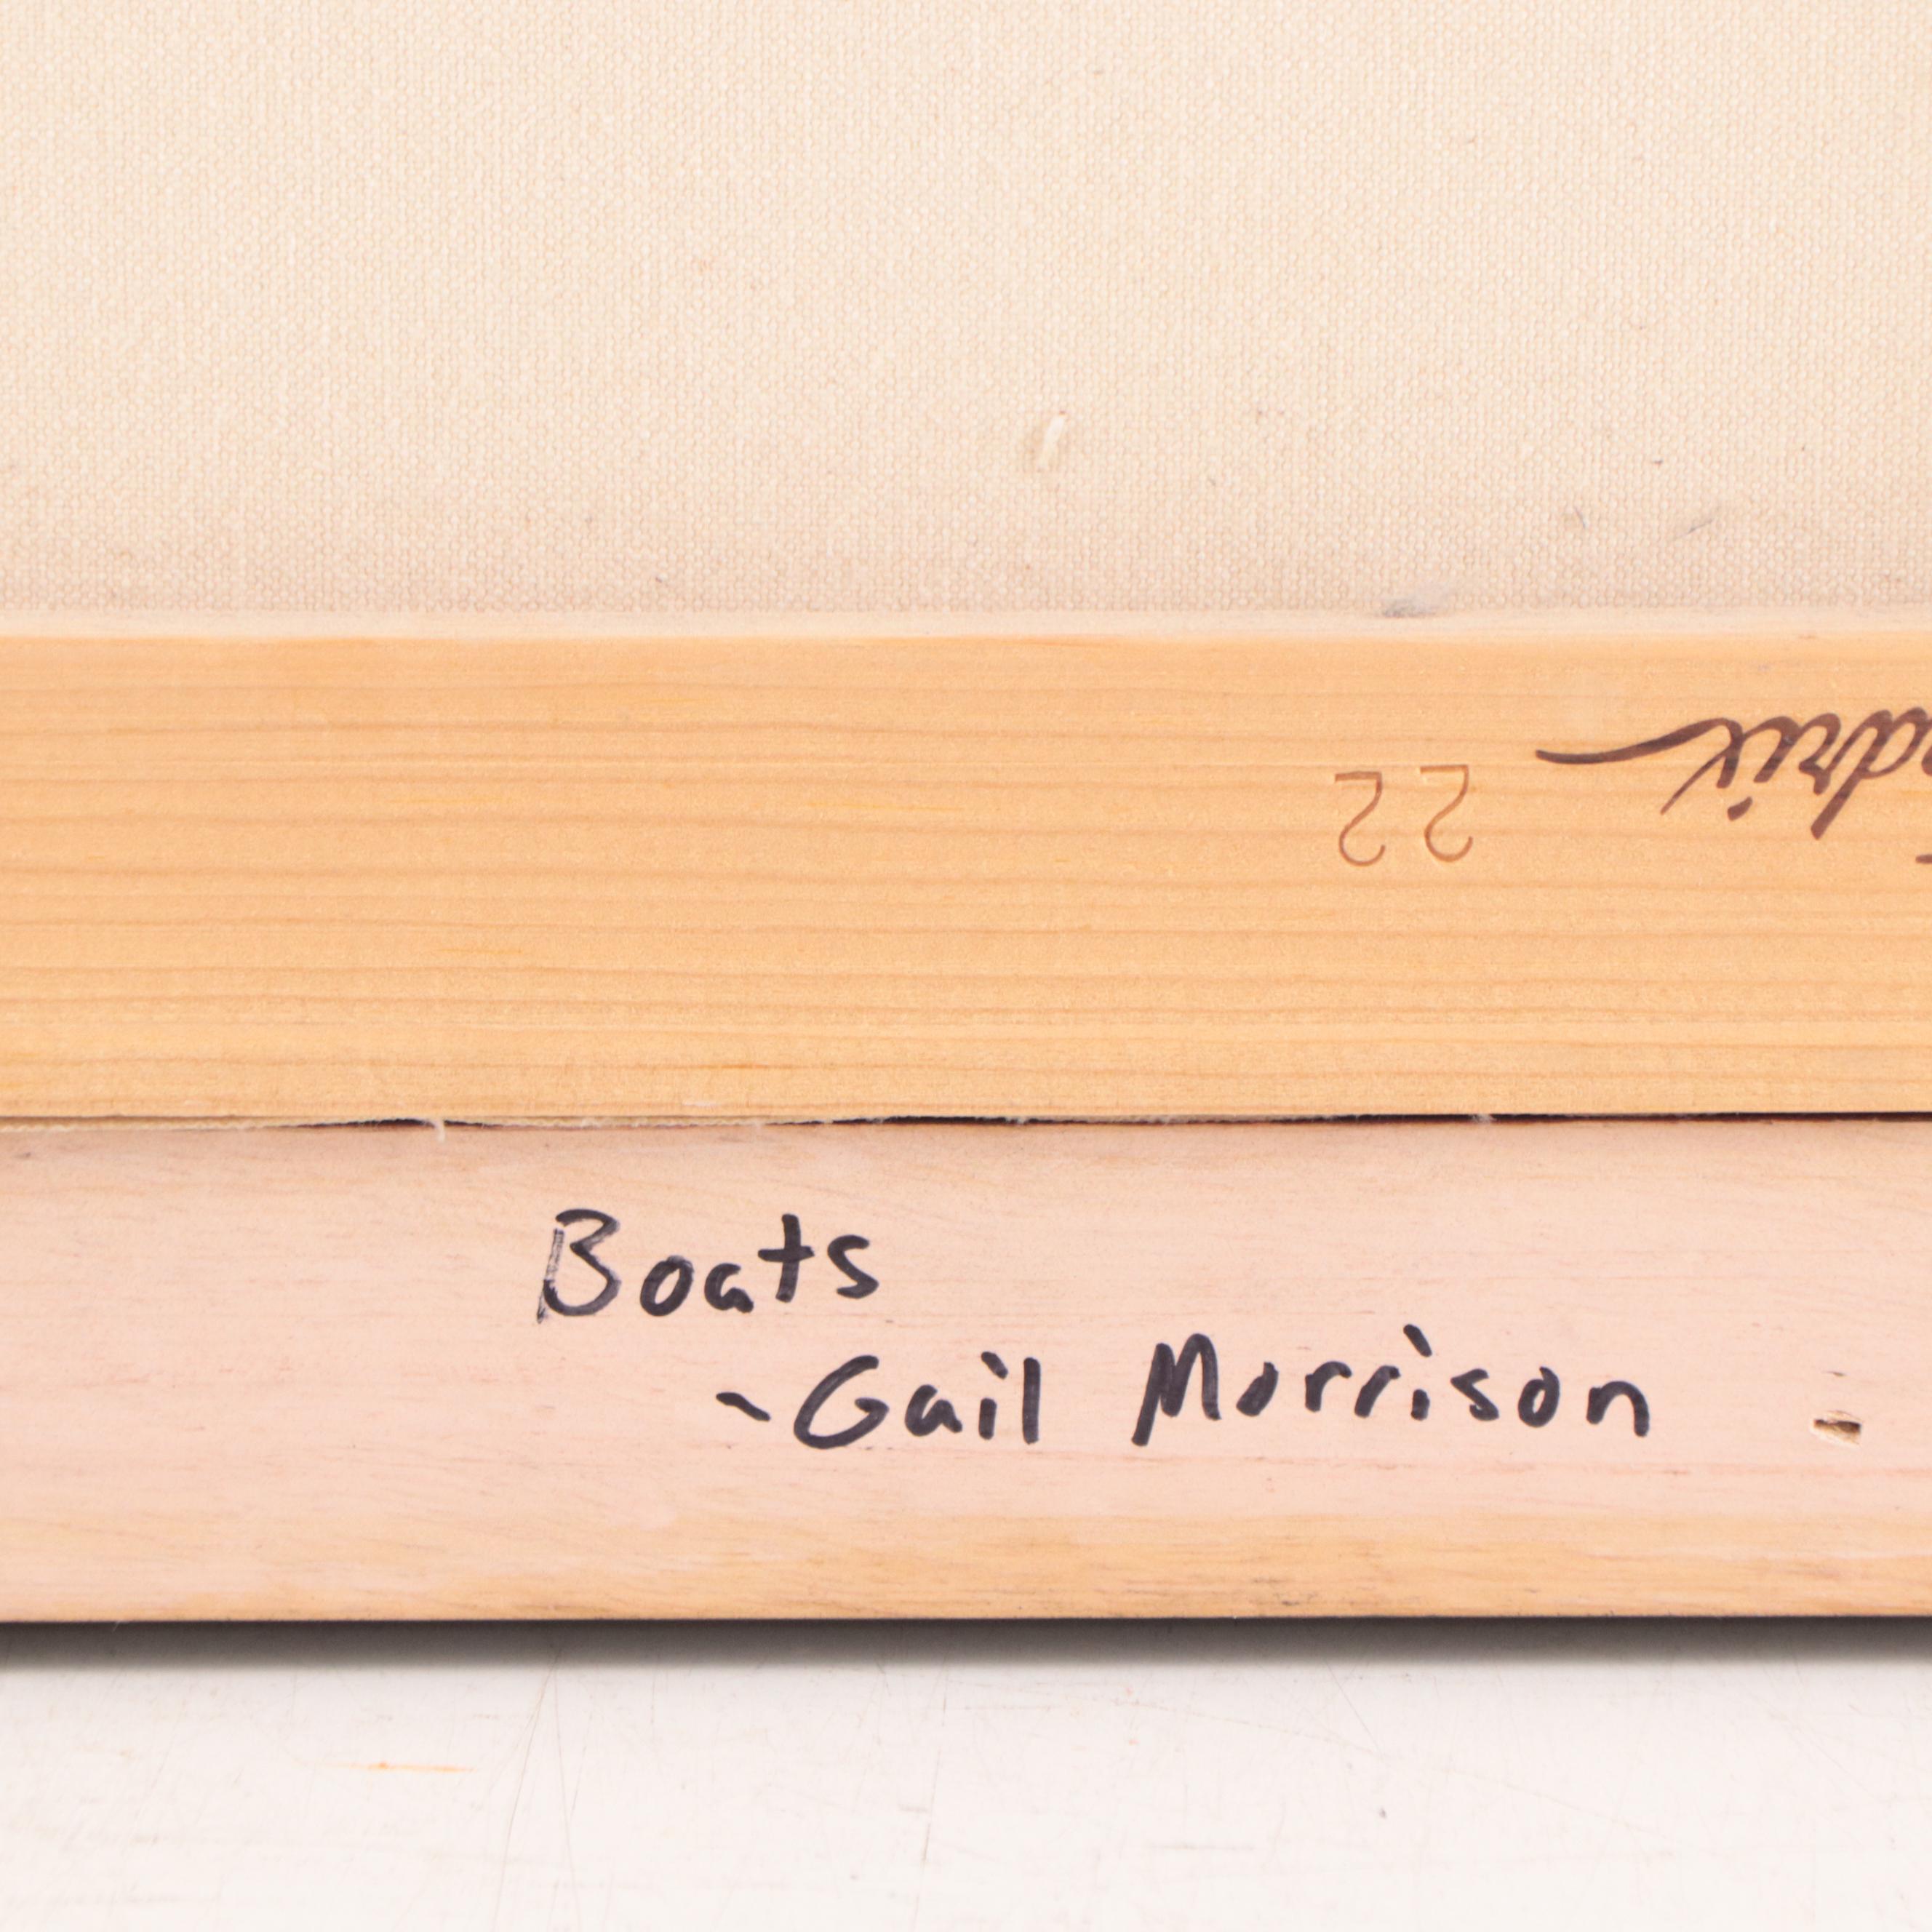 22
Boats
-Gail Morrison